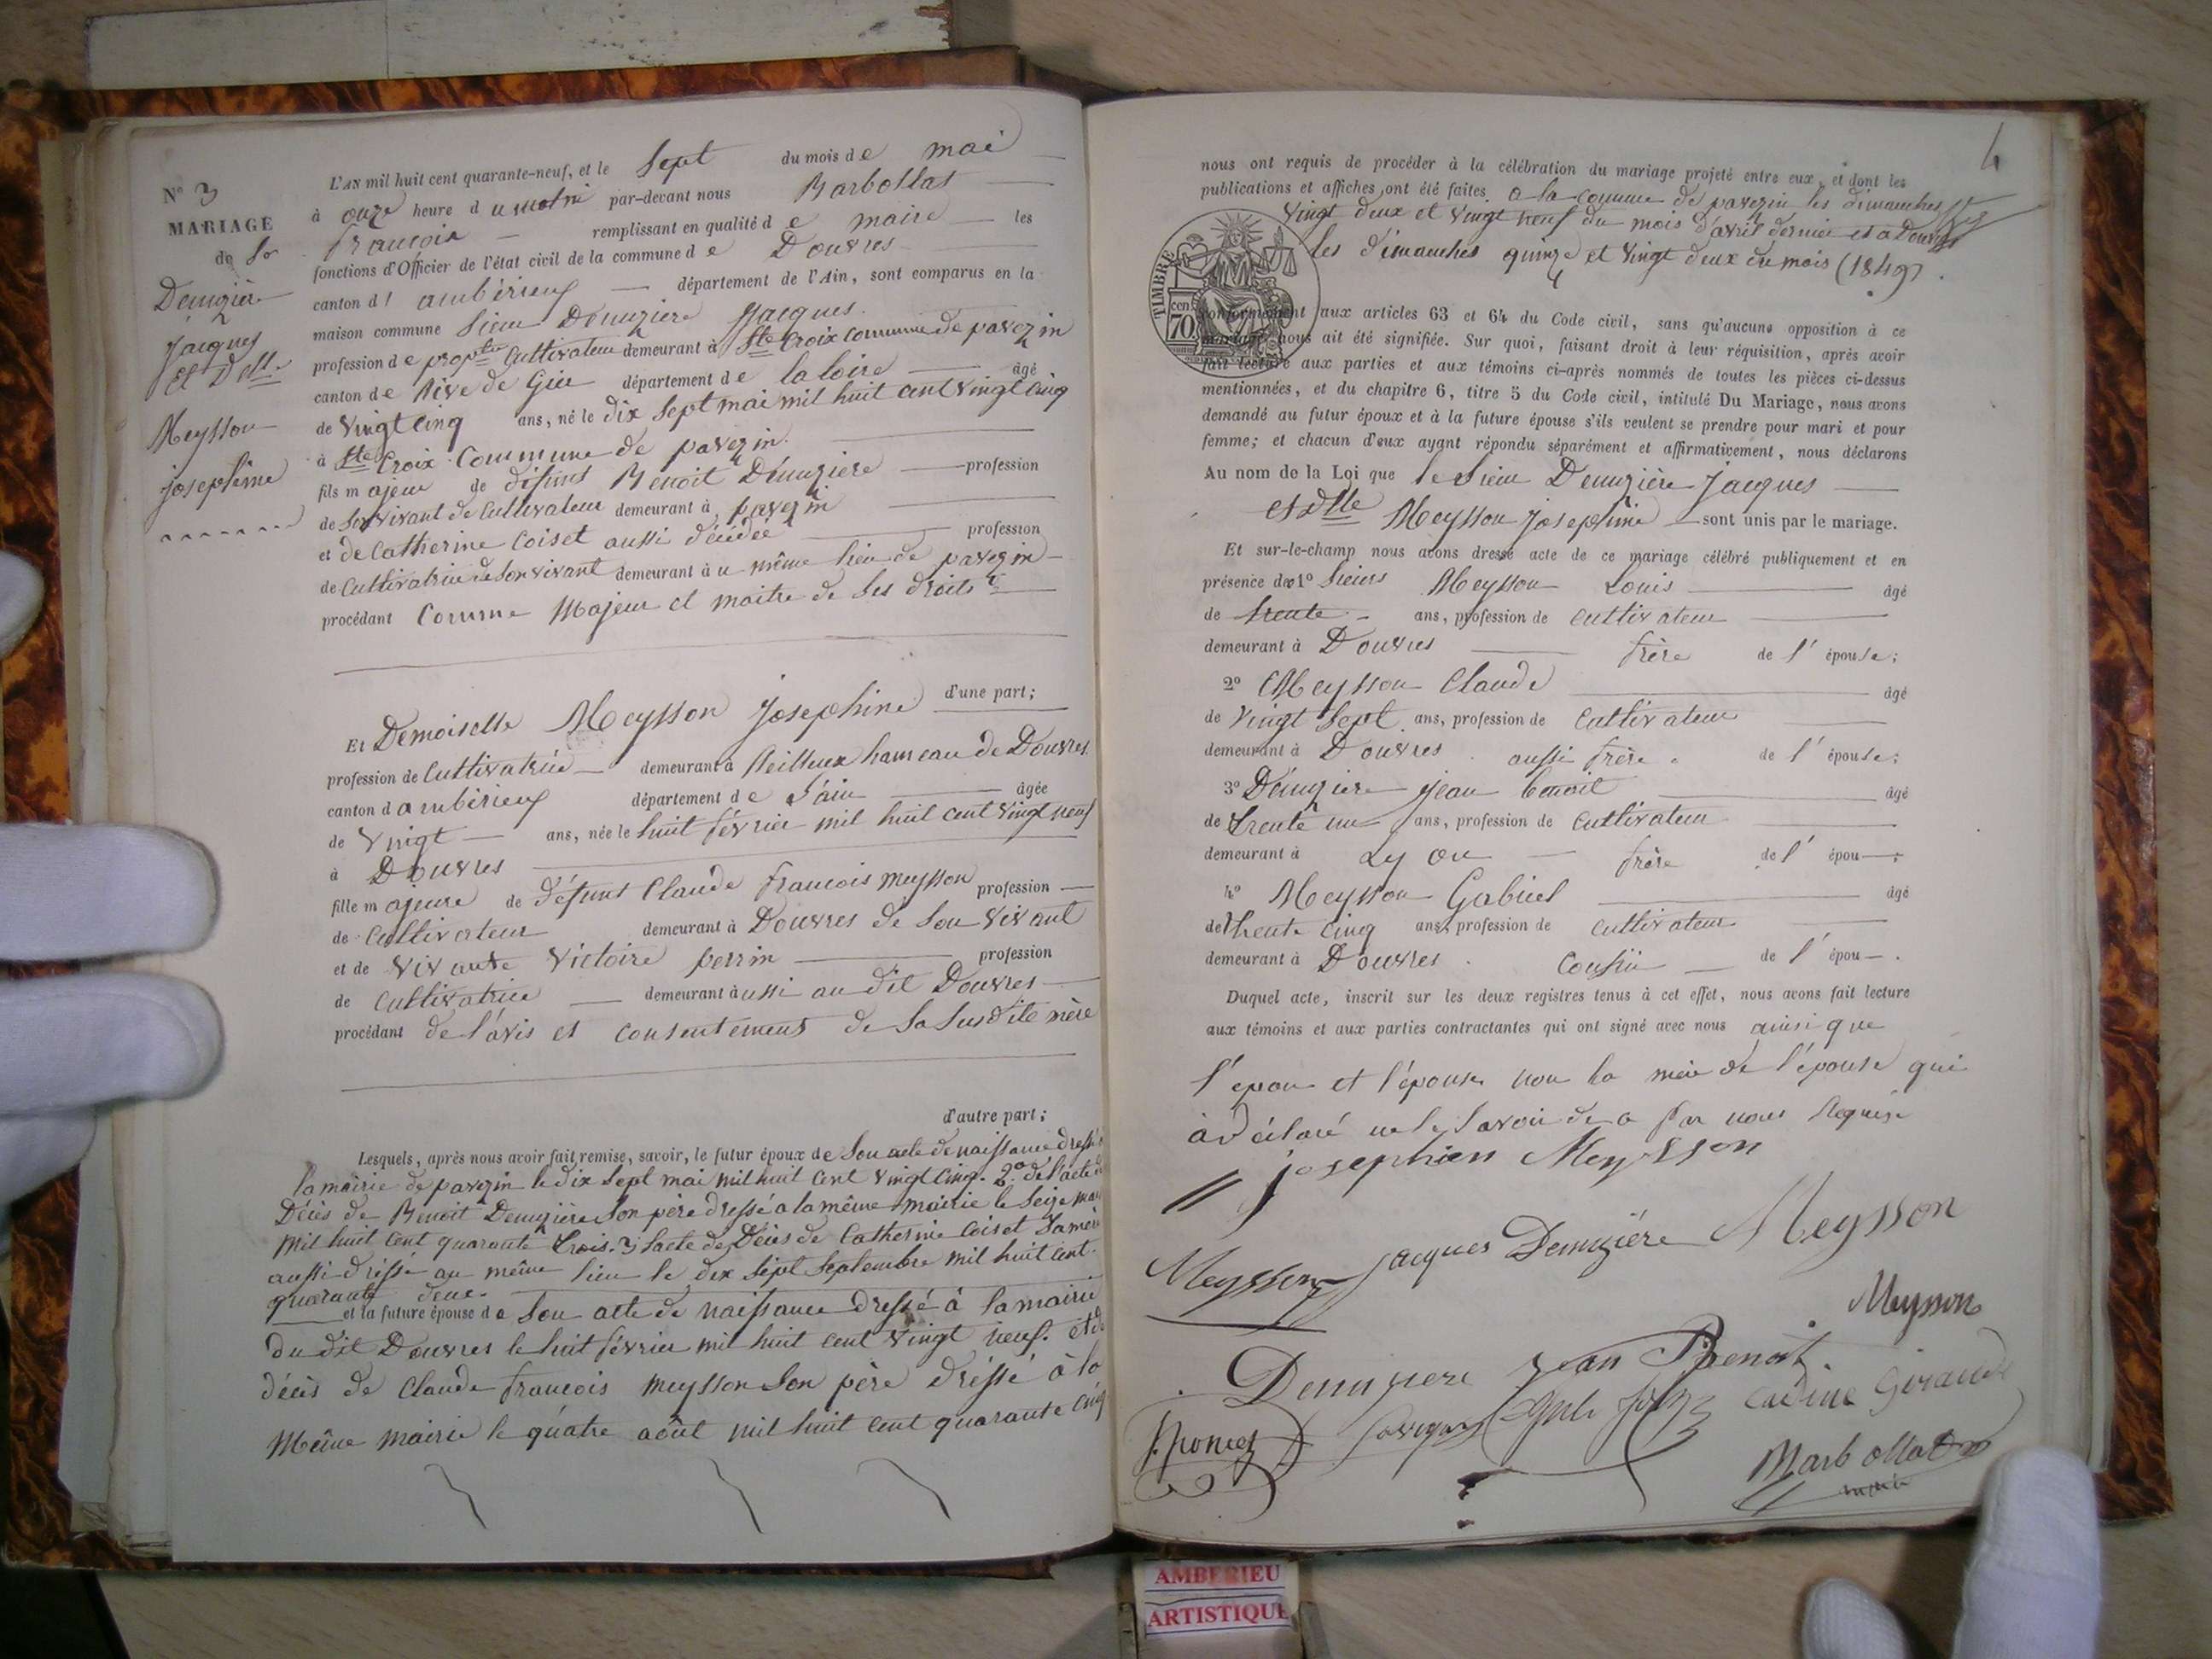 N° 3
MARIAGE
de Sr
Demizière
Jacques
Et Delle
Meysson
josephine
L'AN mil huit cent quarante-neuf, et le Sept du mois de mai
à onze heure du matin par-devant nous Marbollat
françois remplissant en qualité de maire les
fonctions d'Officier de l'état civil de la commune de Douvres
canton d'ambérieux département de l'Ain, sont comparus en la
maison commune Sieur Demizière Jacques
profession de proptre Cultivateur demeurant à Ste Croix Commune de pavezin
canton de Rive de Gier département de la loire âgé
de Vingt Cinq ans, né le dix Sept mai mil huit cent vingt cinq
à Ste Croix Commune de pavezin
fils majeur de défunt Benoit Démizière profession
de Son vivant de Cultivateur demeurant à pavezin
et de Catherine Coiset aussi décédée profession
de Cultivatrice de Son vivant demeurant au même lieu de pavezin
procédant Comme Majeur et maitre de Ses droits
d'une part;
Et Demoiselle Meysson Josephine
profession de Cultivatrice demeurant à hameau de Douvres
canton d'ambérieux département de l'ain âgée
de Vingt ans, née le huit février mil huit cent vingt neuf
à Douvres
fille majeure de défunt Claude francois meysson profession
de Cultivateur demeurant à Douvres de Son vivant
et de vivante Victoire perrin profession
de Cultivatrice demeurant aussi au dit Douvres
procédant de l'avis et consentement de Sa Susdite mère
d'autre part;
Lesquels, après nous avoir fait remise, savoir, le futur époux de Son acte de naissance dressé
la mairie de pavezin le dix Sept mai mil huit cent vingt cinq. 2° de l'acte de
Décès de Benoit Demizière Son père dressé à la même mairie le Seize mai
mil huit cent quarante trois. 3° l'acte de Décès de Catherine Coiset Sa mère
aussi dressé au même lieu le dix Sept Septembre mil huit cent
quarante deux.
et la future épouse de Son acte de naissance dressé à la mairie
du dit Douvres le huit février mil huit cent vingt neuf. et de
décès de Claude francois meysson Son père dressé à la
Même mairie le quatre août mil huit cent quarante cinq
4
nous ont requis de procéder à la célébration du mariage projeté entre eux, et dont les
publications et affiches ont été faites, a la commune de pavezin les dimanches
vingt deux et vingt neuf du mois d'avril dernier et a Douvres
les dimanches quinze et vingt deux du mois (1849).
TIMBRE
70 cen
conformément aux articles 63 et 64 du Code civil, sans qu'aucune opposition à ce
mariage nous ait été signifiée. Sur quoi, faisant droit à leur réquisition, après avoir
fait lecture aux parties et aux témoins ci-après nommés de toutes les pièces ci-dessus
mentionnées, et du chapitre 6, titre 5 du Code civil, intitulé Du Mariage, nous avons
demandé au futur époux et à la future épouse s'ils veulent se prendre pour mari et pour
femme; et chacun d'eux ayant répondu séparément et affirmativement, nous déclarons
Au nom de la Loi que le Sieur Demizière Jacques
et dlle Meysson Josephine sont unis par le mariage.
Et sur-le-champ nous avons dressé acte de ce mariage célébré publiquement et en
présence de 1° Sieurs Meysson Louis âgé
de trente ans, profession de cultivateur
demeurant à Douvres frère de l'épouse;
2° Meysson Claude âgé
de vingt Sept ans, profession de Cultivateur
demeurant à Douvres aussi frère de l'épouse;
3° Démizière Jean benoit âgé
de trente un ans, profession de Cultivateur
demeurant à Lyon frère de l'épou;
4° Meysson Gabriel âgé
de trente cinq ans, profession de cultivateur
demeurant à Douvres Cousin de l'épou.
Duquel acte, inscrit sur les deux registres tenus à cet effet, nous avons fait lecture
aux témoins et aux parties contractantes qui ont signé avec nous ainsi que
l'epoux et l'épouse non la mère de l'épouse qui
a déclaré ne le Savoir de a par nous Requise
josephien Meysson
Meysson Jacques Demizière Meysson
Meysson
Demizière Jean Benoit.
J. poncet Cadine Giraud
Marbollat
maire
AMBERIEU
ARTISTIQUE